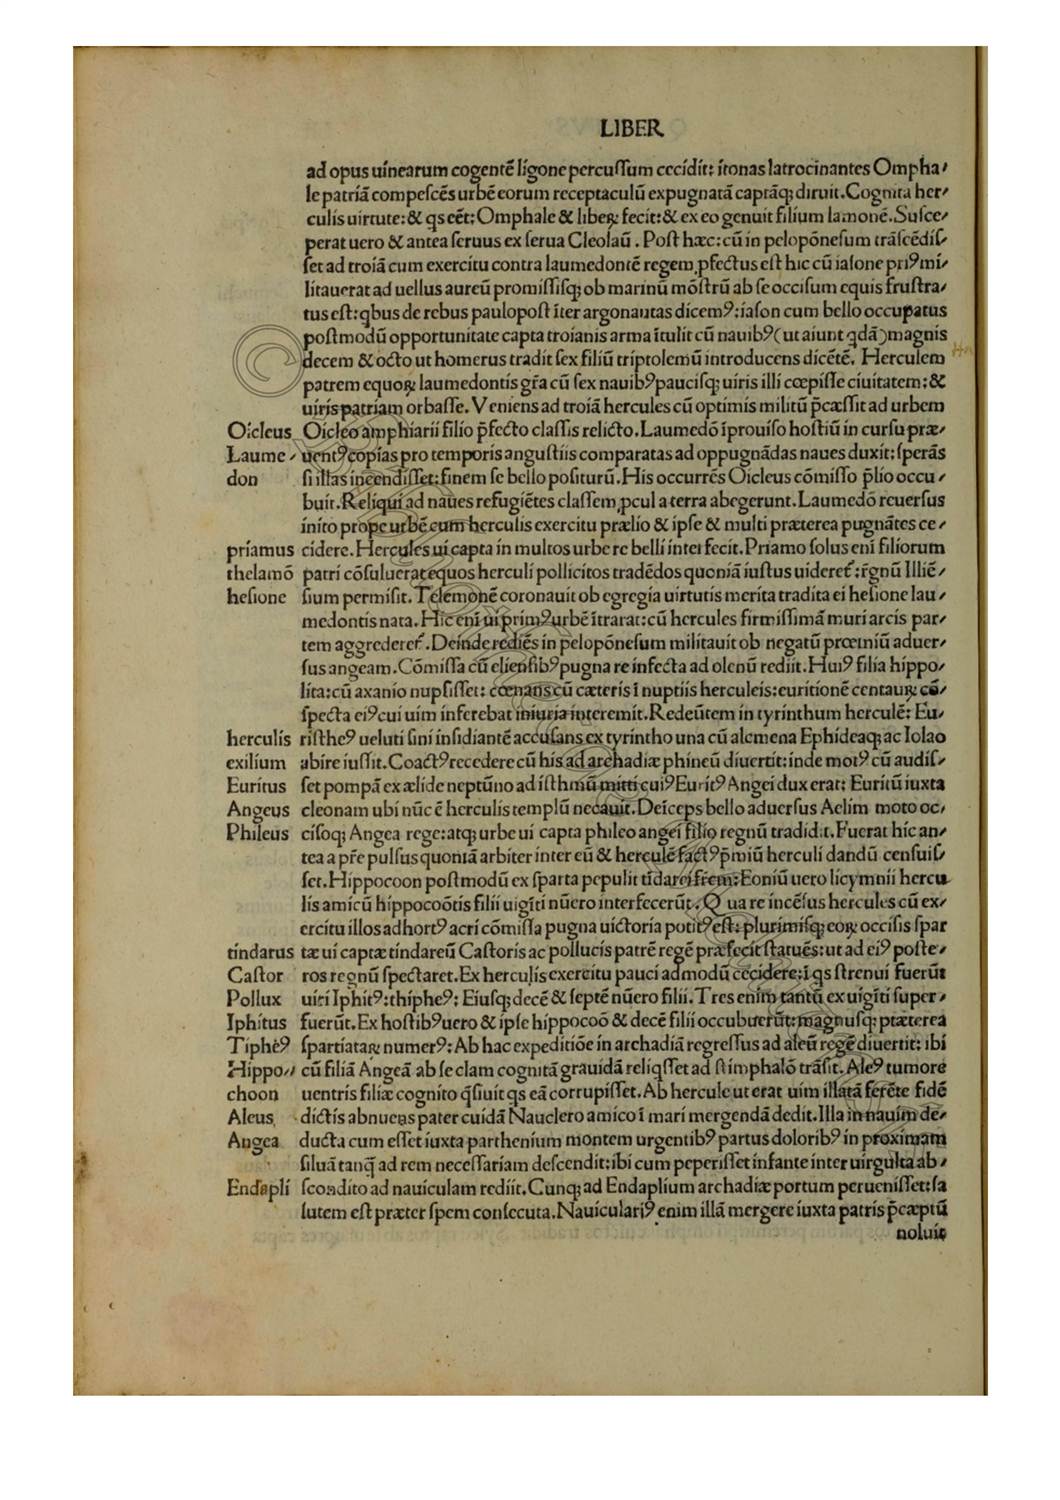 LIBER
ad opus uinearum cogentē ligone percuſſum cecidit: itonas latrocinantes Ompha/
le patriā compeſcēs urbē eorum receptaculū expugnatā captāq; diruit. Cognita her/
culis uirtute: & qs eēt: Omphale & liberꝝ fecit: & ex eo genuit filium lamonē. Suſce/
perat uero & antea ſeruus ex ſerua Cleolaū. Poſt hæc: cū in pelopōneſum trāſcēdiſ/
ſet ad troiā cum exercitu contra laumedontē regem ꝓfectus eſt hic cū iaſone priꝰ mi/
litauerat ad uellus aureū promiſſiſq; ob marinū mōſtrū ab ſe occiſum equis fruſtra/
tus eſt: qbus de rebus paulopoſt īter argonautas dicemꝰ: iaſon cum bello occupatus
poſtmodū opportunitate capta troianis arma ītulit cū nauibꝰ (ut aiunt qdā) magnis
decem & octo ut homerus tradit ſex filiū triptolemū introducens dicētē. Herculem
patrem equoꝝ laumedontis gr̄a cū ſex nauibꝰ pauciſq; uiris illi cœpiſſe ciuitatem: &
uiris patriam orbaſſe. Veniens ad troiā hercules cū optimis militū p̄cæſſit ad urbem
Oicleus Oicleo amphiarii filio p̄fecto claſſis relicto. Laumedō īprouiſo hoſtiū in curſu præ/
Laume/ uentꝰ copias pro temporis anguſtiis comparatas ad oppugnādas naues duxit: ſperās
don ſi illas incendiſſet: finem ſe bello poſiturū. His occurrēs Oicleus cōmiſſo p̄lio occu/
buit. Reliqui ad naues refugiētes claſſem ꝓcul a terra abegerunt. Laumedō reuerſus
inito prope urbē cum herculis exercitu prælio & ipſe & multi præterea pugnātes ce/
priamus cidere. Hercules ui capta in multos urbe re belli interfecit. Priamo ſolus enī filiorum
thelamō patri cōſuluerat equos herculi pollicitos tradēdos quoniā iuſtus uideret᷑: r̄gnū Illiē/
heſione ſium permiſit. Telemonē coronauit ob egregia uirtutis merita tradita ei heſione lau/
medontis nata. Hic enī ui primꝰ urbē ītrarat: cū hercules firmiſſimā muri arcis par/
tem aggrederet᷑. Deinde rediēs in pelopōneſum militauit ob negatū prœmiū aduer/
ſus angeam. Cōmiſſa cū elienſibꝰ pugna re infecta ad olenū rediit. Huiꝰ filia hippo/
lita: cū axanio nupſiſſet: cœnans cū cæteris ī nuptiis herculeis: euritionē centauꝝ cō/
ſpecta eiꝰ cui uim inferebat iniuria interemit. Redeūtem in tyrinthum herculē: Eu/
herculis riſtheꝰ ueluti ſini inſidiantē accuſans ex tyrintho una cū alcmena Ephideaq; ac Iolao
exilium abire iuſſit. Coactꝰ recedere cū his ad archadiæ phineū diuertit: inde motꝰ cū audiſ/
Euritus ſet pompā ex ælide neptūno ad iſthmū mitti cuiꝰ Euritꝰ Angei dux erat: Euritū iuxta
Angeus cleonam ubi nūc ē herculis templū necauit. Deīceps bello aduerſus Aelim moto oc/
Phileus ciſoq; Angea rege: atq; urbe ui capta phileo angei filio regnū tradidit. Fuerat hic an/
tea a pr̄e pulſus quoniā arbiter inter eū & herculē factꝰ p̄miū herculi dandū cenſuiſ/
ſet. Hippocoon poſtmodū ex ſparta pepulit tīdarei fr̄em: Eoniū uero licymnii hercu
lis amicū hippocoōtis filii uigīti nūero interfecerūt. Qua re incēſus hercules cū ex/
ercitu illos adhortꝰ acri cōmiſſa pugna uictoria potitꝰ eſt: plurimiſq; eoꝝ occiſis ſpar
tindarus tæ ui captæ tindareū Caſtoris ac pollucis patrē regē præfecit ſtatuēs: ut ad eiꝰ poſte/
Caſtor ros regnū ſpectaret. Ex herculis exercitu pauci admodū cecidere: ī qs ſtrenui fuerūt
Pollux uiri Iphitꝰ: thipheꝰ: Eiuſq; decē & ſeptē nūero filii. Tres enim tantū ex uigīti ſuper/
Iphitus fuerūt. Ex hoſtibꝰ uero & ipſe hippocoō & decē filii occubuerūt: magnuſq; præterea
Tipheꝰ ſpartiataꝝ numerꝰ: Ab hac expeditiōe in archadiā regreſſus ad aleū regē diuertit: ibi
Hippo/ cū filiā Angeā ab ſe clam cognitā grauidā reliqſſet ad ſtimphalō trāſit. Aleꝰ tumore
choon uentris filiæ cognito q̄ſiuit qs eā corrupiſſet. Ab hercule ut erat uim illatā ferēte fidē
Aleus dictis abnuens pater cuidā Nauclero amico ī mari mergendā dedit. Illa in nauim de/
Angea ducta cum eſſet iuxta parthenium montem urgentibꝰ partus doloribꝰ in proximam
ſiluā tanq̄ ad rem neceſſariam deſcendit: ibi cum peperiſſet infante inter uirgulta ab/
Endapli ſcondito ad nauiculam rediit. Cunq; ad Endaplium archadiæ portum perueniſſet: ſa
lutem eſt præter ſpem conſecuta. Nauiculariꝰ enim illā mergere iuxta patris p̄cæptū
noluit